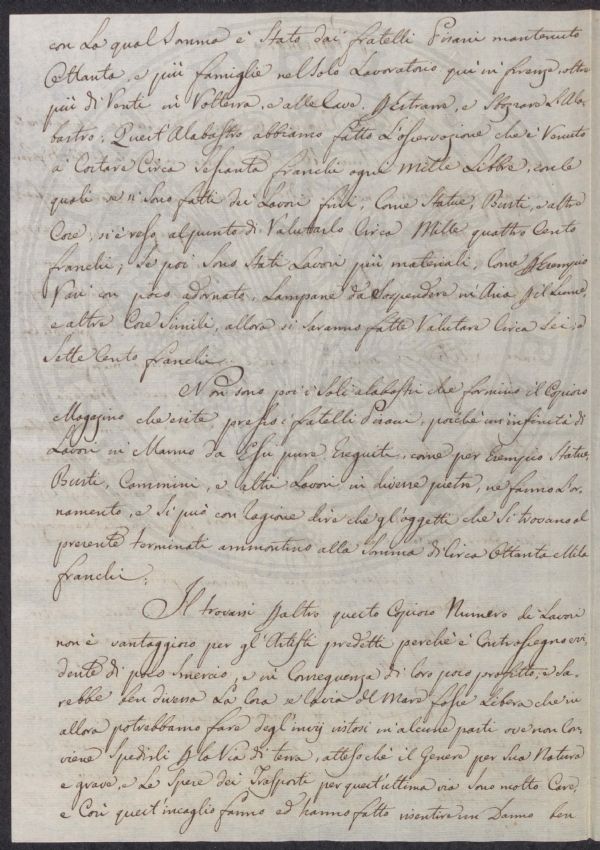 con La qual Somma è Stato dai fratelli Pisani mantenuto
Ottanta, e più famiglie nel Solo Lavoratorio qui in firenze, oltre
più di Venti in Volterra, e alle Cave, p Estrarre, e Sbozzare L'Ala-
bastro; Quest'Alabastro abbiamo fatto L'osservazione che è Venuto
à Costare Circa Sessanta franchi ogni Mille Libbre, con le
quali se si Sono fatti dei Lavori fini, Come Statue, Busti, e altre
Cose, si è reso al punto di Valutarlo Circa Mille quattro Cento
franchi; Se poi Sono Stati Lavori più materiali, Come p Esempio
Vasi con poco adornato, Lampane da Sospendere in Aria p il Lume,
e altre Cose Simili, allora si saranno fatte Valutare Circa Sei, o
Sette Cento franchi.
Non sono poi i Soli alabastri che formino il Copioso
Magazino che esiste presso i fratelli Pisani, poichè un'infinità di
Lavori in Marmo da Essi pure Eseguiti, come per Esempio Statue,
Busti, Cammini, e altri Lavori in diverse pietre, ne fanno L'or-
namento, e Si può con ragione dire che gl'oggetti che Si trovano al
presente terminati ammontino alla Somma di Circa Ottanta Mila
franchi.
Il trovarsi p altro questo Copioso Numero di Lavori
non è vantaggioso per gl'Artisti predetti perchè è Contrasegno evi-
dente di poco Smercio, e in Conseguenza di loro poco profitto, e Sa-
rebbe ben diversa La Cosa se la via del Mare fosse Libera che in
allora potrebbamo fare degl'invij vistosi in alcune parti ove non Con-
viene Spedirli p la Via di terra, atteso chè il Genere per Sua Natura
e grave, e Le Spese dei Trasporti per quest'ultima via Sono molto Care,
e Così quest'incaglio fanno ed hanno fatto risentire un Danno ben